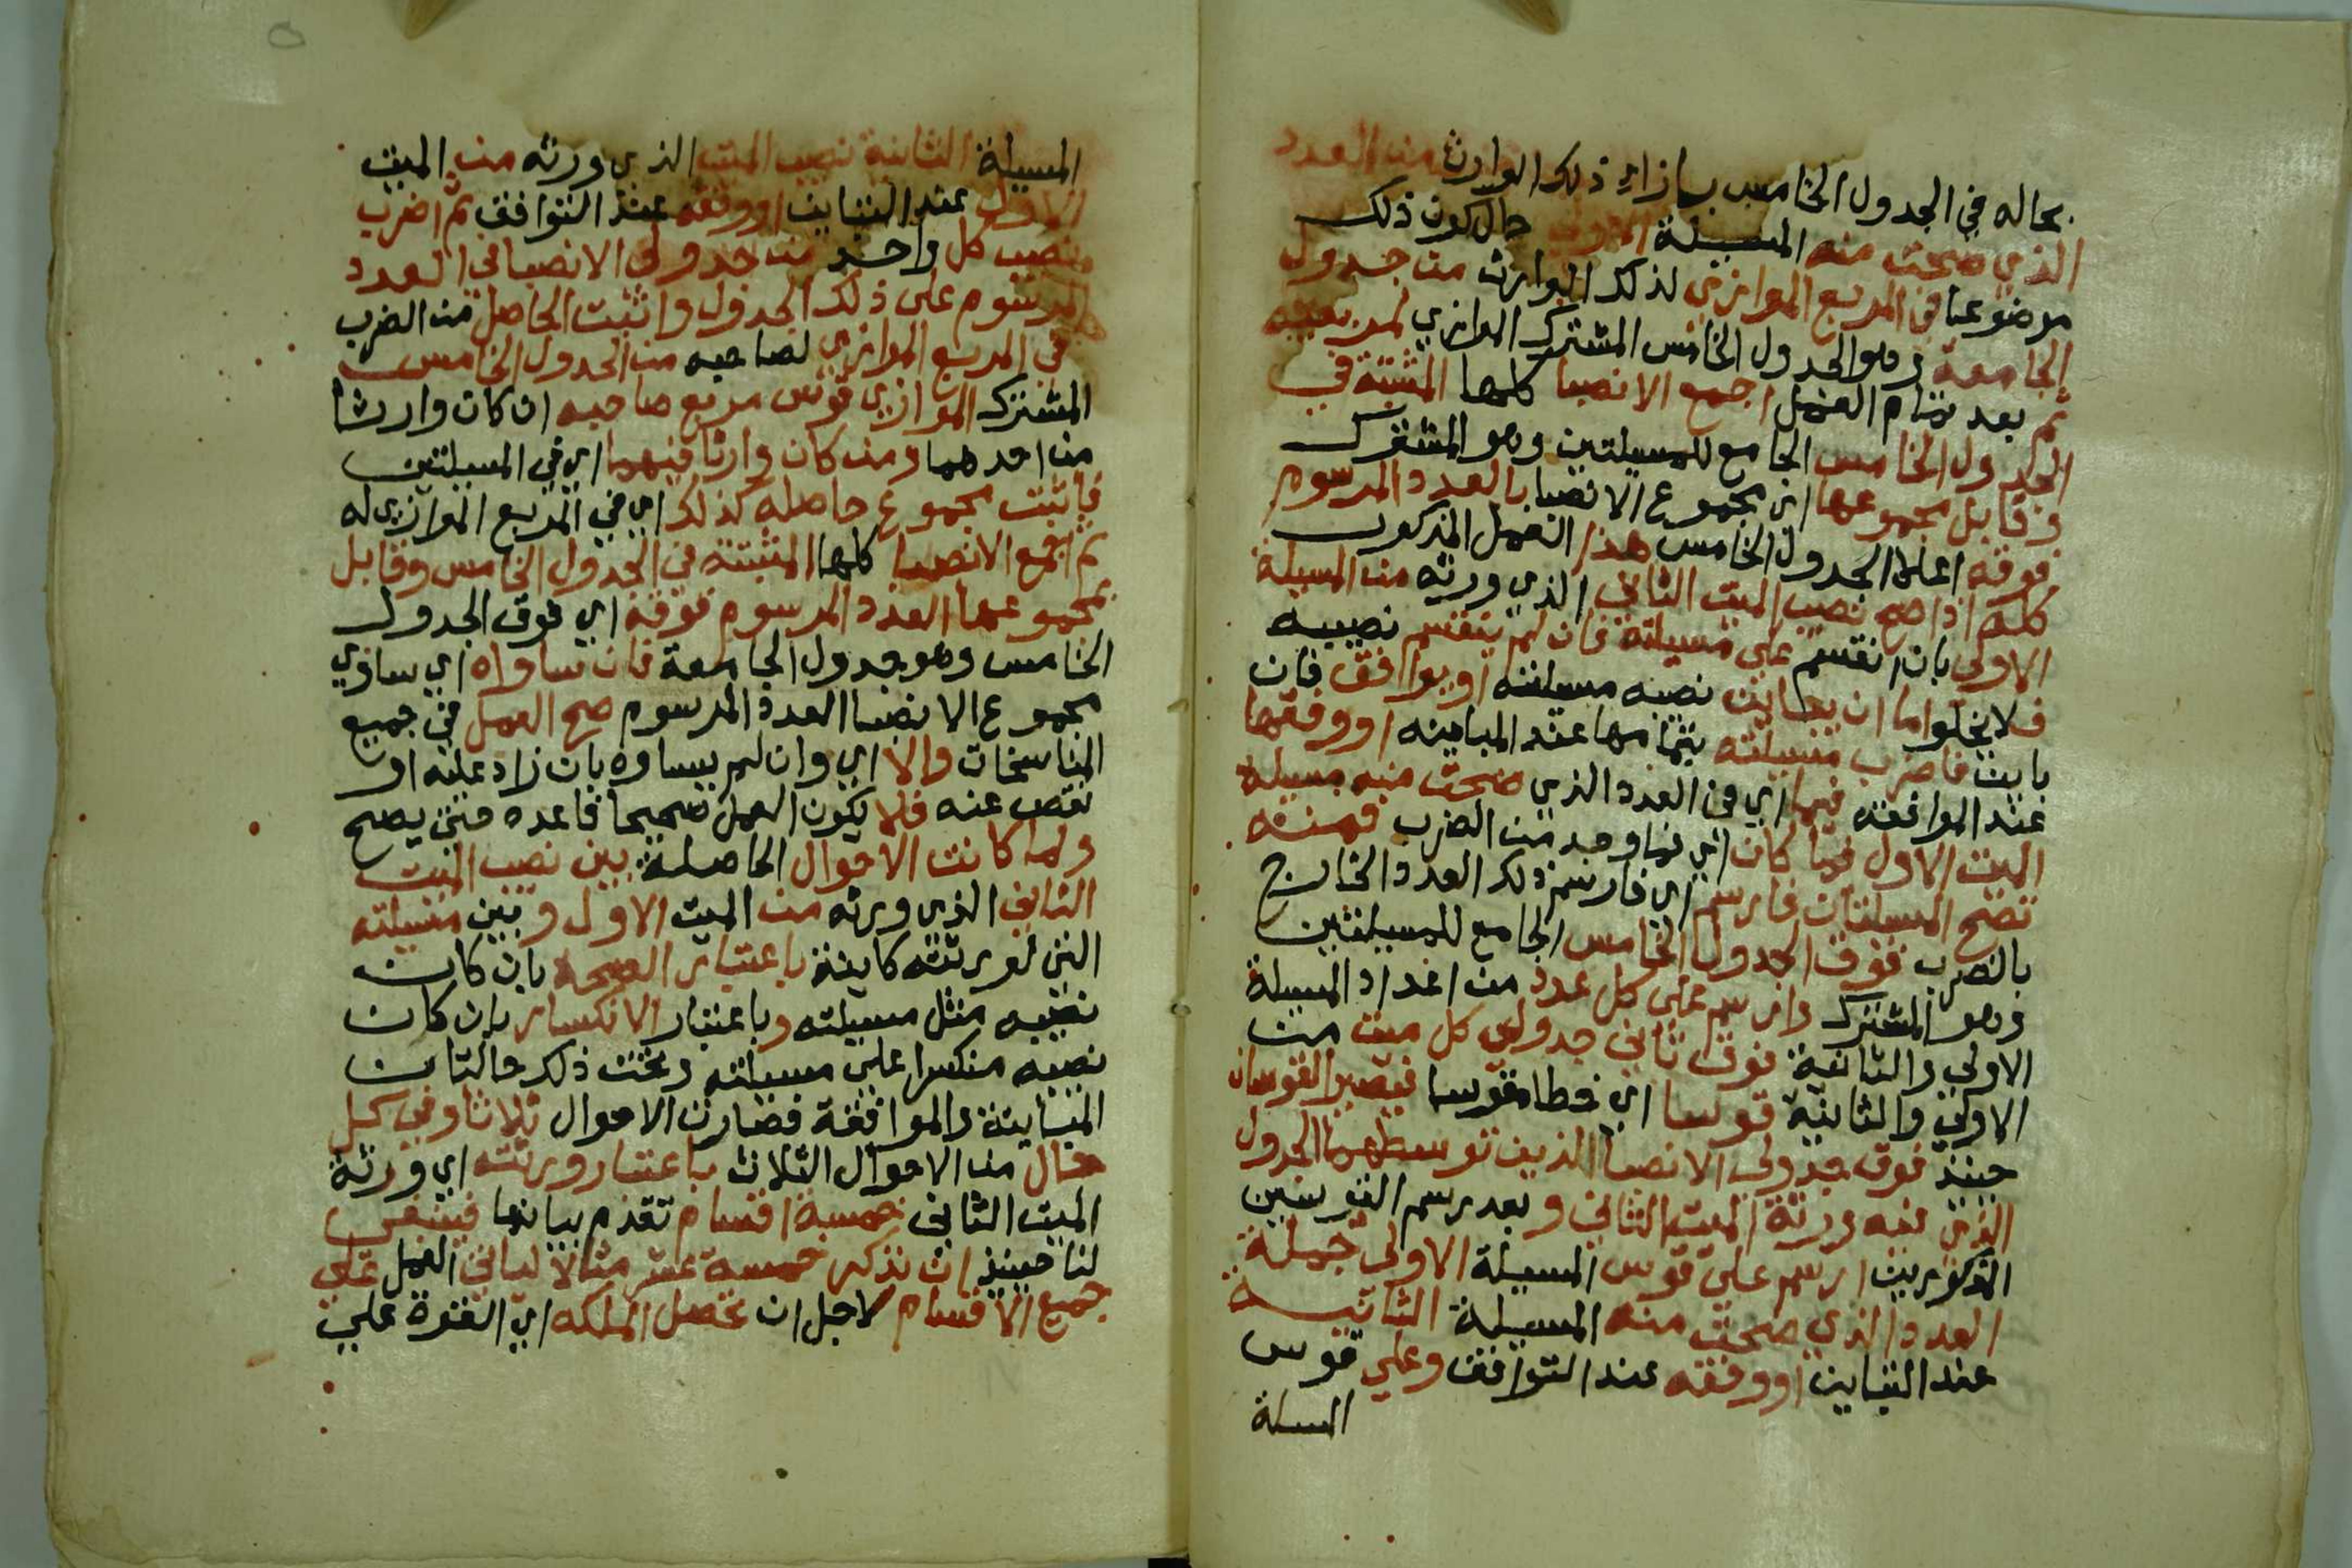 بحاله في الجدول الخامس بازاء ذلك الوارث من العدد
الذي صحت منه المسيلة الاولى حال كون ذلك
موضوعا في المربع الموازي لذلك الوارث من جدول
الجامعة وهو الجدول الخامس المشترك الموازي لمربعيه
ثم بعد تمام العمل اجمع الانصبا كلها المثبتة في
الجدول الخامس الجامع للمسيلتين وهو المشترك
وقابل مجموعها اي مجموع الانصبا بالعدد المرسوم
فوقه اعلا الجدول الخامس هذا العمل المذكور
كله اذا صح نصيب الميت الثاني الذي ورثه من المسيلة
الاولى بان انقسم على مسيلته فان لم ينقسم نصيبه
فلا يخلوا اما ان يباين نصيبه مسيلته او يوافق فان
باين فاضرب مسيلته بتمامها عند المباينه او وفقها
عند الموافقه فيما اي في العدد الذي صحت منه مسيلة
الميت الاول فما كان اي فما وجد من الضرب فمنه
تصح المسلتان فارسم اي فارسم ذلك العدد الخارج
بالضرب فوق الجدول الخامس الجامع للمسيلتين
وهو المشترك وارسم على كل عدد من اعداد المسيلة
الاولي والثانية فوق ثاني جدولي كل ميت من
الاولي والثانية قوسا اي خطا مقوسا فيصير القوسان
حينيذ فوق جدولي الانصبا الذين توسطهما الجدول
الذي فيه ورثة الميت الثاني وبعد رسم القوسين
المذكورين ارسم على قوس المسيلة الاولى جملة
العدد الذي صحت منه المسيلة الثانية
عند التباين او وفقه عند التوافق وعلي قوس
المسلة
المسيلة الثانية نصيب الميت الذي ورثه من الميت
الاول عند التباين او وفقه عند التوافق ثم اضرب
نصيب كل واحد من جدولي الانصبا في العدد
المرسوم على ذلك الجدول واثبت الحاصل من الضرب
في المربع الموازي لصاحبه من الجدول الخامس
المشترك الموازي قوس مربع صاحبه ان كان وارثا
من احدهما ومن كان وارثا فيهما اي في المسيلتين
فاثبت مجموع حاصله كذلك اي في المربع الموازي له
ثم اجمع الانصبا كلها المثبتة في الجدول الخامس وقابل
بمجموعها العدد المرسوم فوقه اي فوق الجدول
الخامس وهو جدول الجامعة فان ساواه اي ساوي
مجموع الانصبا العدد المرسوم صح العمل في جميع
المناسخات والا اي وان لم يساوه بان زاد عليه او
نقص عنه فلا يكون العمل صحيحا فاعده متى يصح
ولما كانت الاحوال الحاصلة بين نصيب الميت
الثاني الذي ورثه من الميت الاول وبين مسيلته
التي لورثته كاينة باعتبار الصحة بان كان
نصيبه مثل مسيلته وباعتبار الانكسار بان كان
نصيبه منكسرا على مسيلته وتحت ذلك حالتان
المباينة والموافقة فصارت الاحوال ثلاثا وفي كل
حال من الاحوال الثلاث باعتبار ورثته اي ورثة
الميت الثاني خمسة اقسام تقدم بيانها فينبغي
لنا حينيذ ان نذكر خمسة عشر مثالا لياتي العمل على
جميع الاقسام لاجل ان تحصل الملكه اي القوة علي